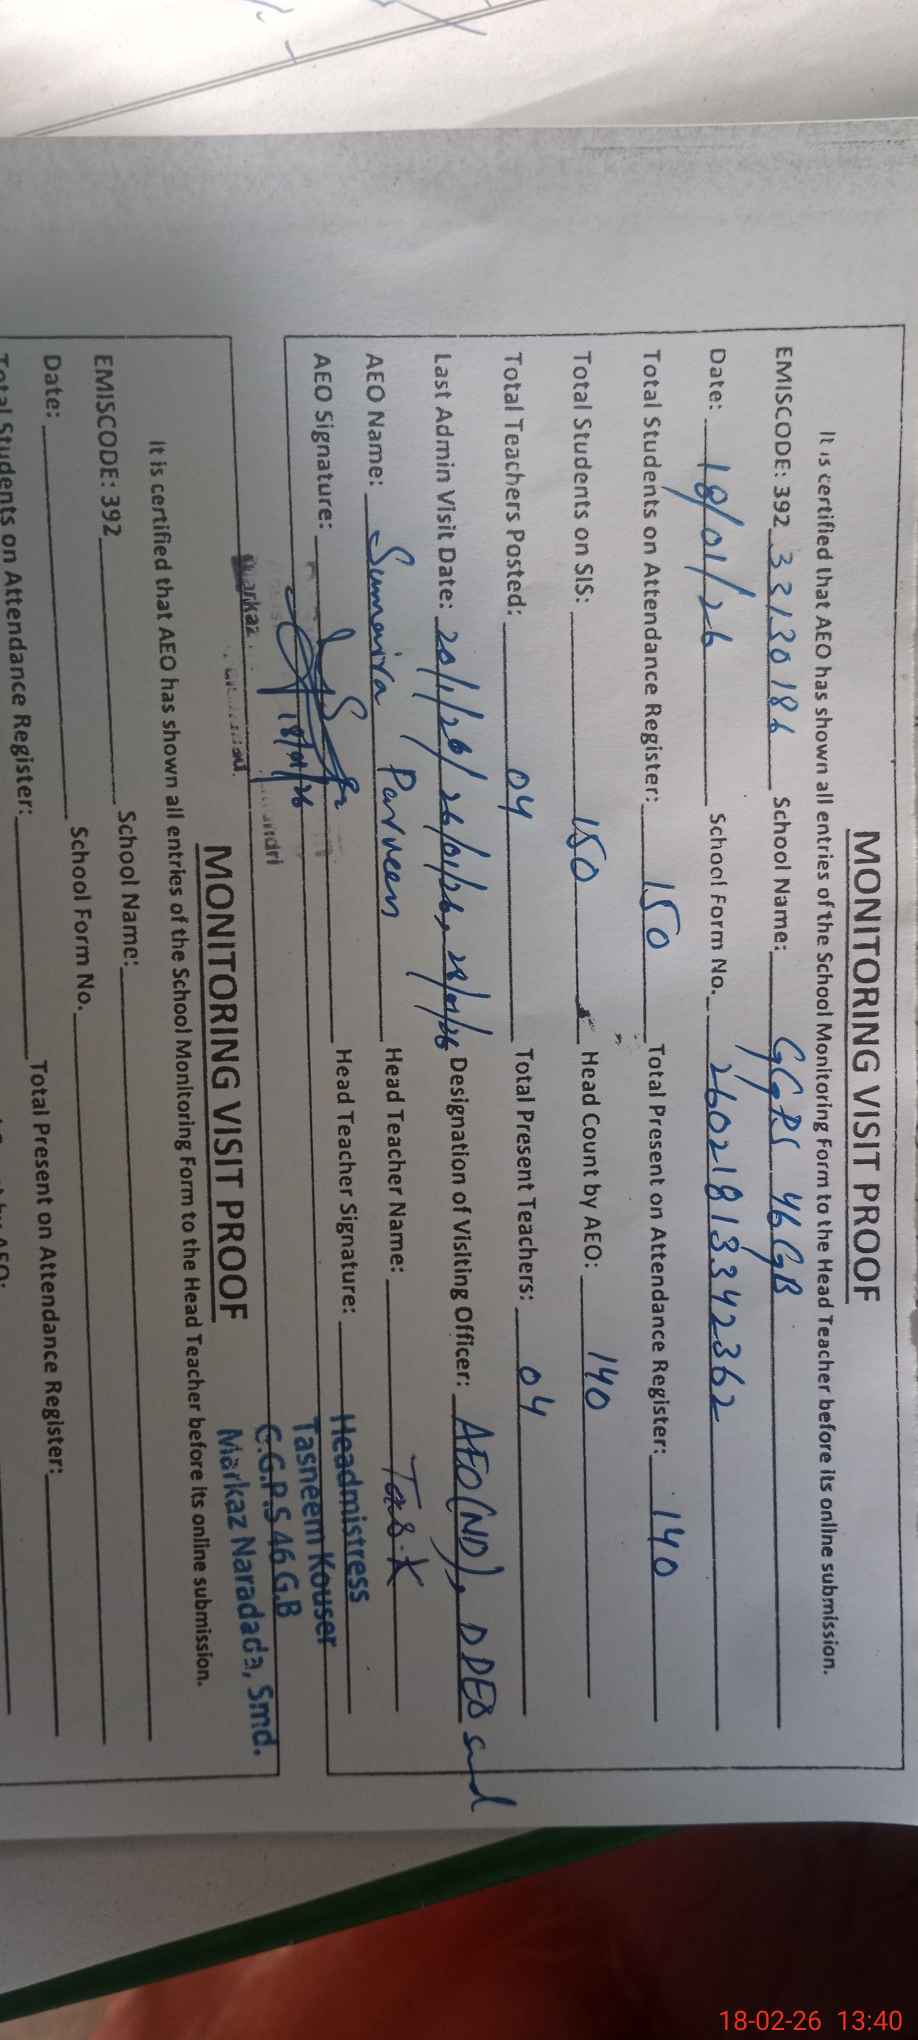 MONITORING VISIT PROOF
It is certified that AEO has shown all entries of the School Monitoring Form to the Head Teacher before its online submission.
EMISCODE: 392 33130186 School Name: GGPS 46 GB
Date: 18/01/26 School Form No. 26021813342362
Total Students on Attendance Register: 150 Total Present on Attendance Register: 140
Total Students on SIS: 150 Head Count by AEO: 140
Total Teachers Posted: 04 Total Present Teachers: 04
Last Admin Visit Date: 20/1/26/ 26/01/26, 28/01/26 Designation of Visiting Officer: AEO(ND), DDEO smd
AEO Name: Sumaira Parveen Head Teacher Name: Tas.K
AEO Signature: Head Teacher Signature:
18/01/26
Headmistress
Tasneem Kouser
G.G.P.S 46 G.B
Markaz Naradada, Smd.
Markaz
MONITORING VISIT PROOF
It is certified that AEO has shown all entries of the School Monitoring Form to the Head Teacher before its online submission.
EMISCODE: 392 School Name:
Date: School Form No.
Total Students on Attendance Register: Total Present on Attendance Register:
18-02-26 13:40